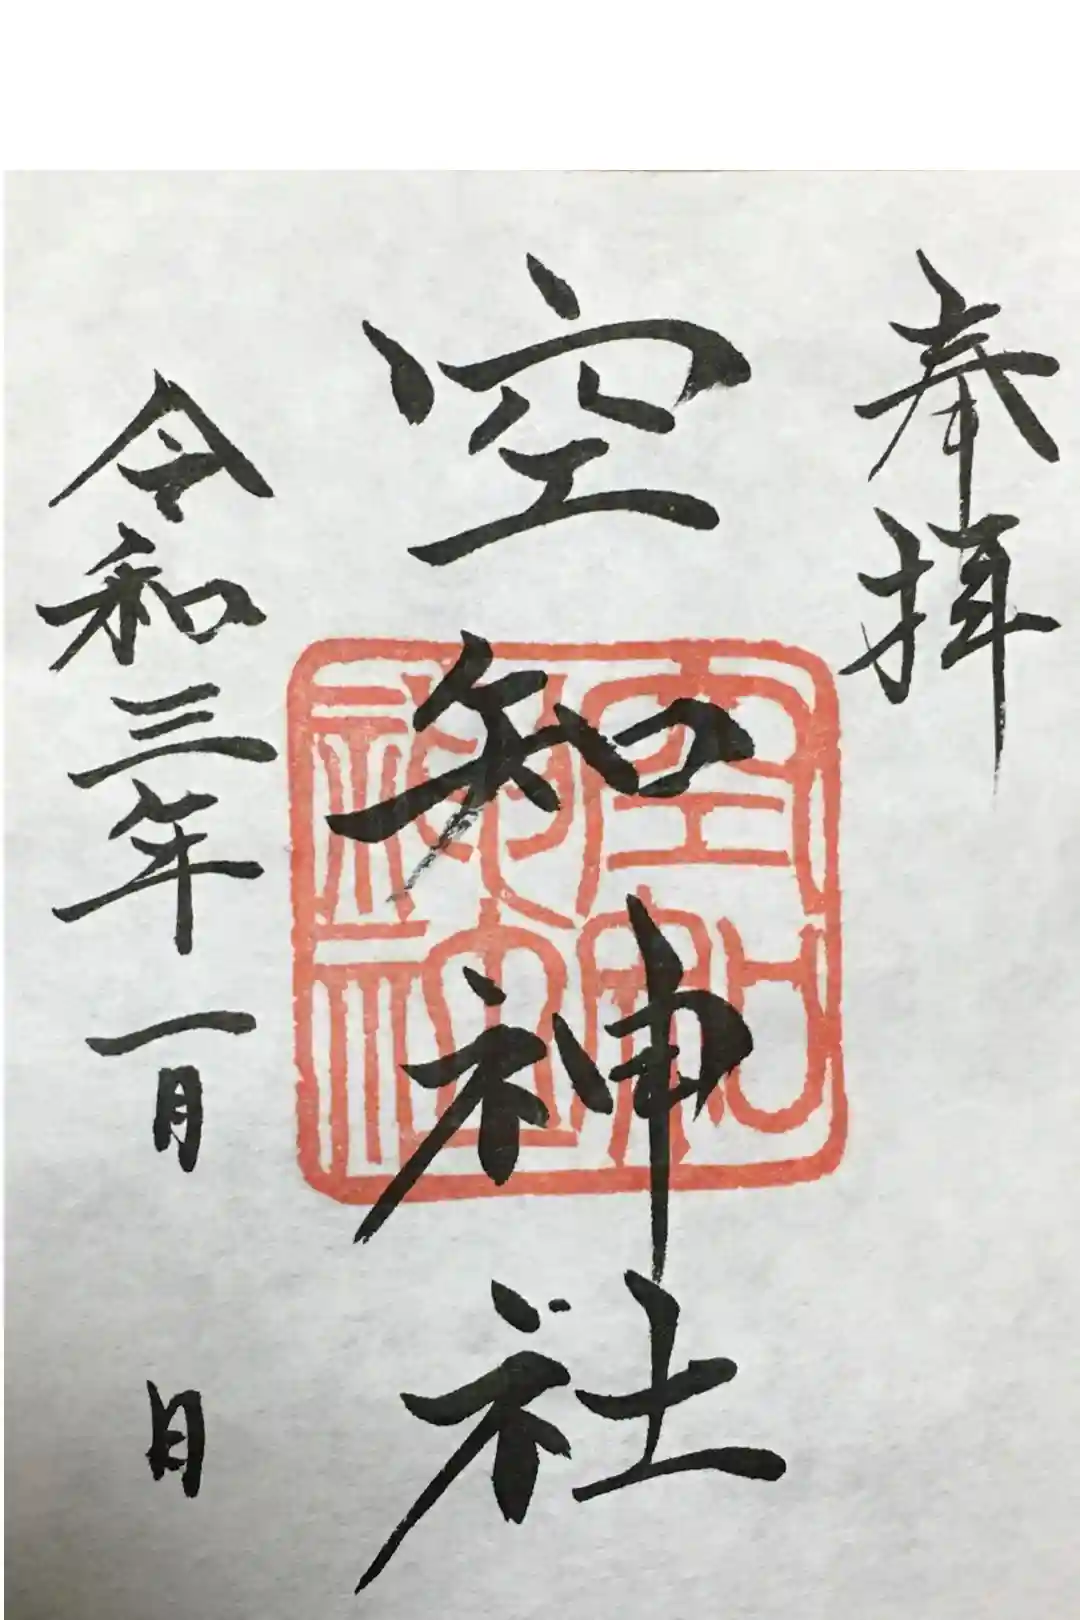 奉拝
空知神社
空知神社
令和三年一月 日